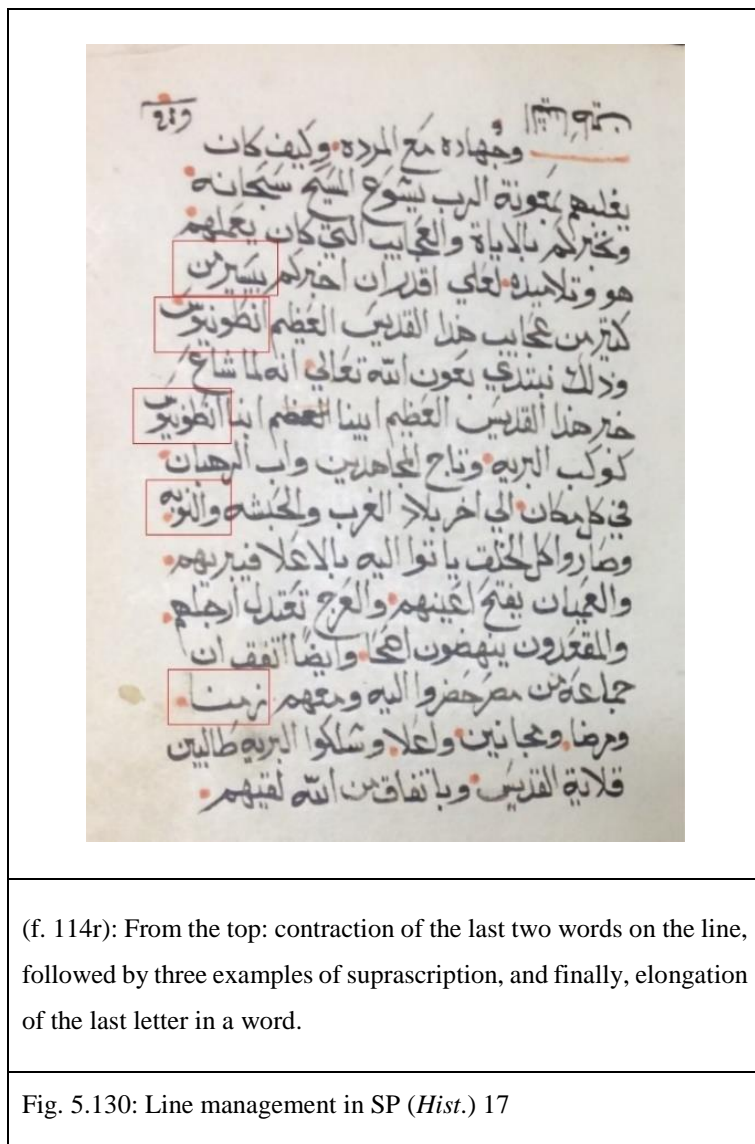 وجهاده مع المرده وكيف كان
يغلبهم بمعونة الرب يشوع المسيح سبحانه
ونخبركم بالاياة والعجايب التي كان يعملهم
هو وتلاميده لعلي اقدر ان اخبركم بيسير من
كتير من عجايب هدا القديس العظيم انطونيوس
ودلك نبتدي بعون الله تعالي انه لما شاع
خبر هدا القديس العظيم ابينا العظم انبا انطونيوس
كوكب البريه وتاج المجاهدين واب الرهبان
في كل مكان الي اخر بلاد الغرب والحبشه والنوبه
وصاروا كل الخلق ياتوا اليه بالاعلا فيبريهم
والعميان يفتح اعينهم والعرج تعتدل ارجلهم
والمقعدون ينهضون اصحا وايضا اتفق ان
جماعة من مصر حضروا اليه ومعهم زمنا
ومرضا ومجانين واعلا وسلكوا البريه طالبين
قلاية القديس وباتفاق من الله لقيهم
(f. 114r): From the top: contraction of the last two words on the line,
followed by three examples of suprascription, and finally, elongation
of the last letter in a word.
Fig. 5.130: Line management in SP (Hist.) 17